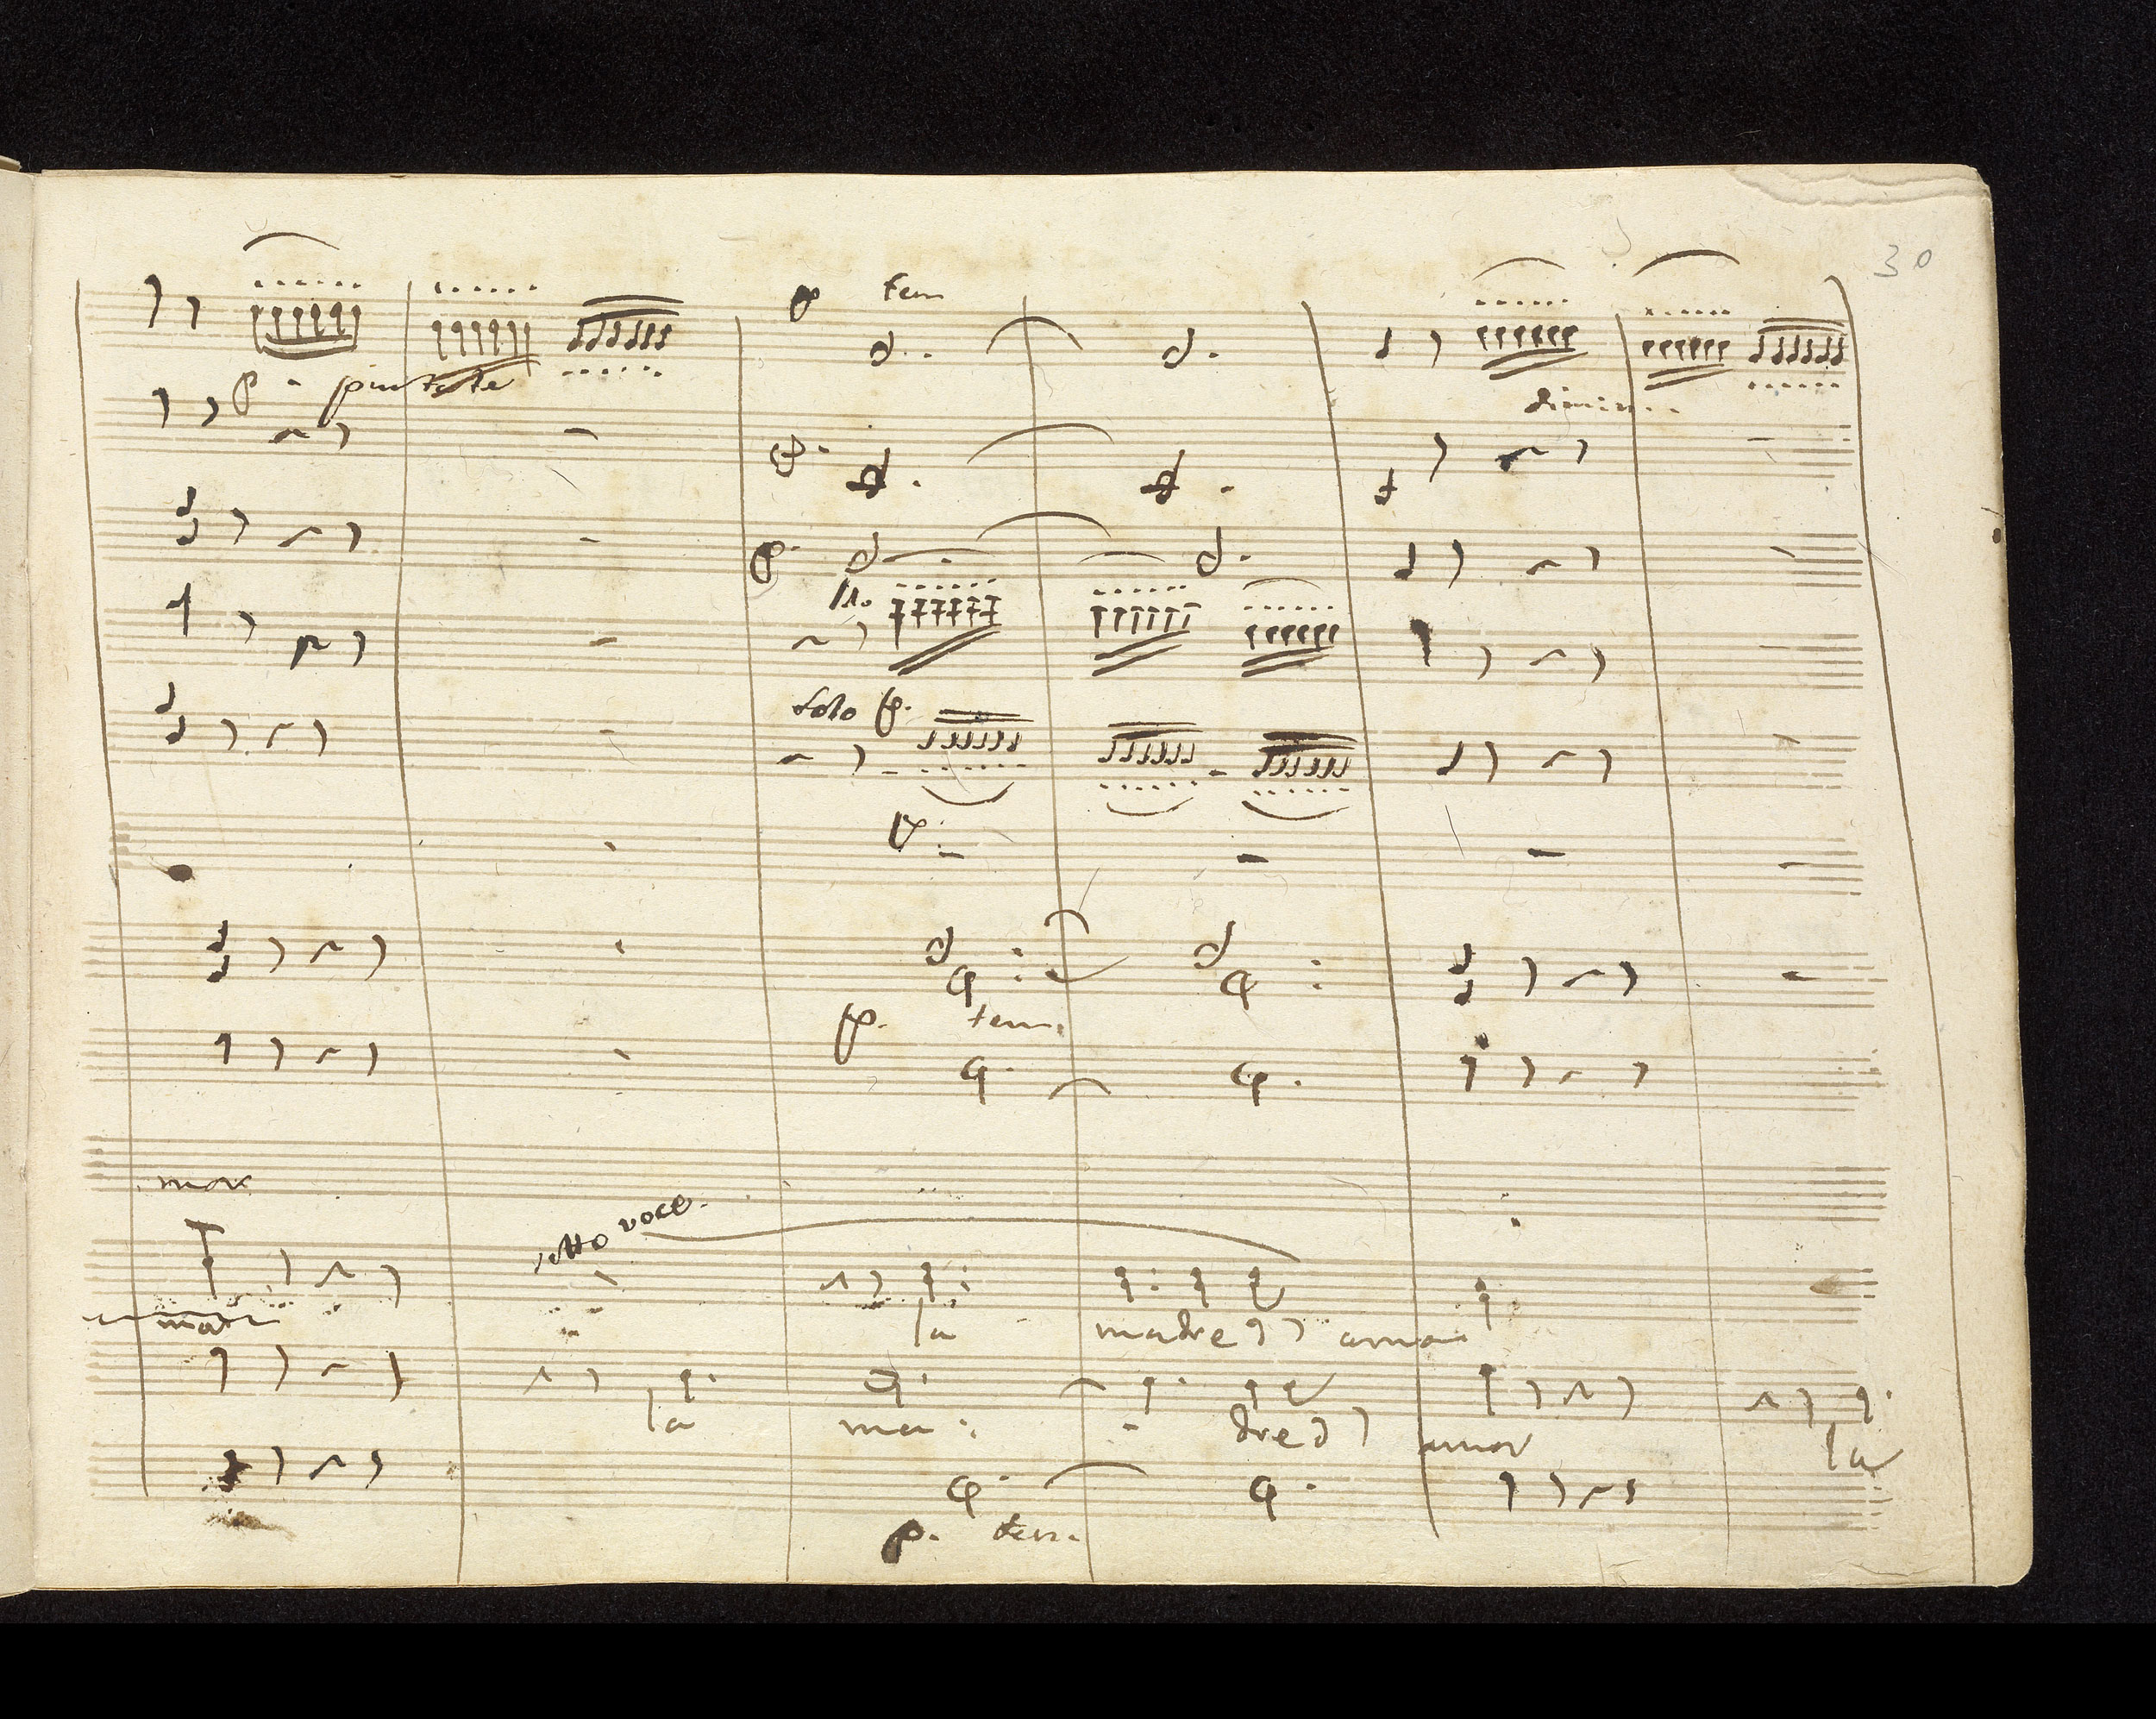 30
ten
p. puntate
dimin..
p.
p.
1o.
solo p.
p.
p. ten.
mor
sotto voce.
mor la madre amor
la ma - dre amor la
p. ten.